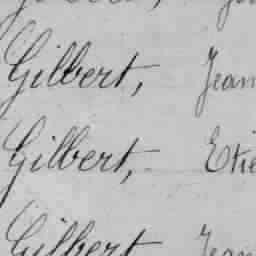 Gilbert, Jean
Gilbert, Etie
Gilbert Jean